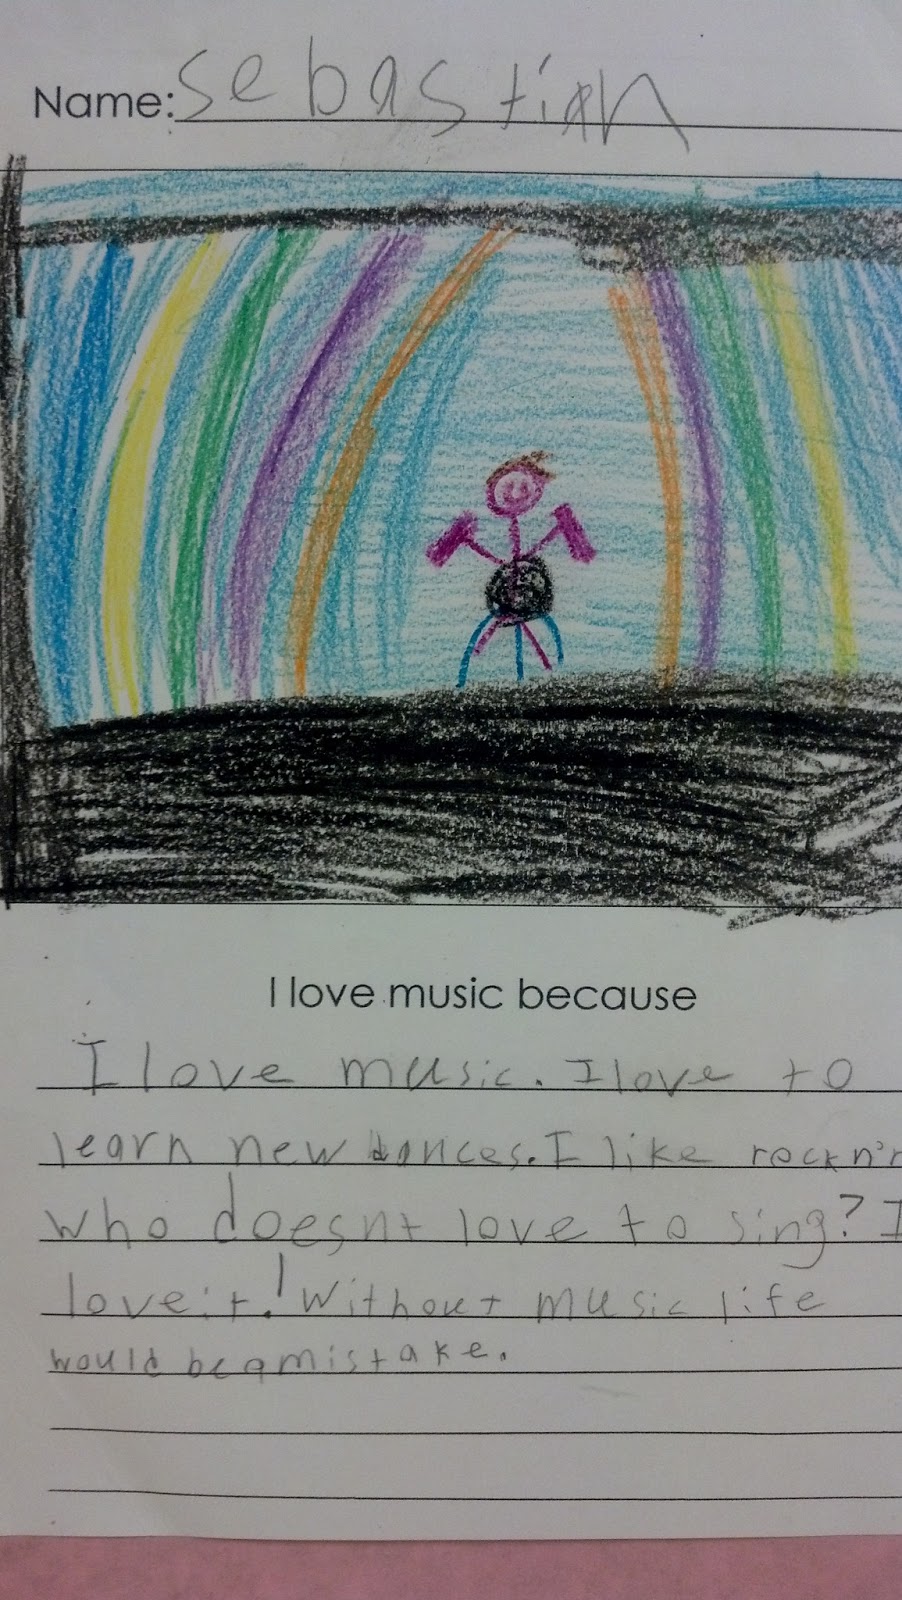 Name: Sebastian
I love music because
I love music. I love to
learn new dances. I like rock n'r
who doesnt love to sing? I
love it! Without music life
would be a mistake.